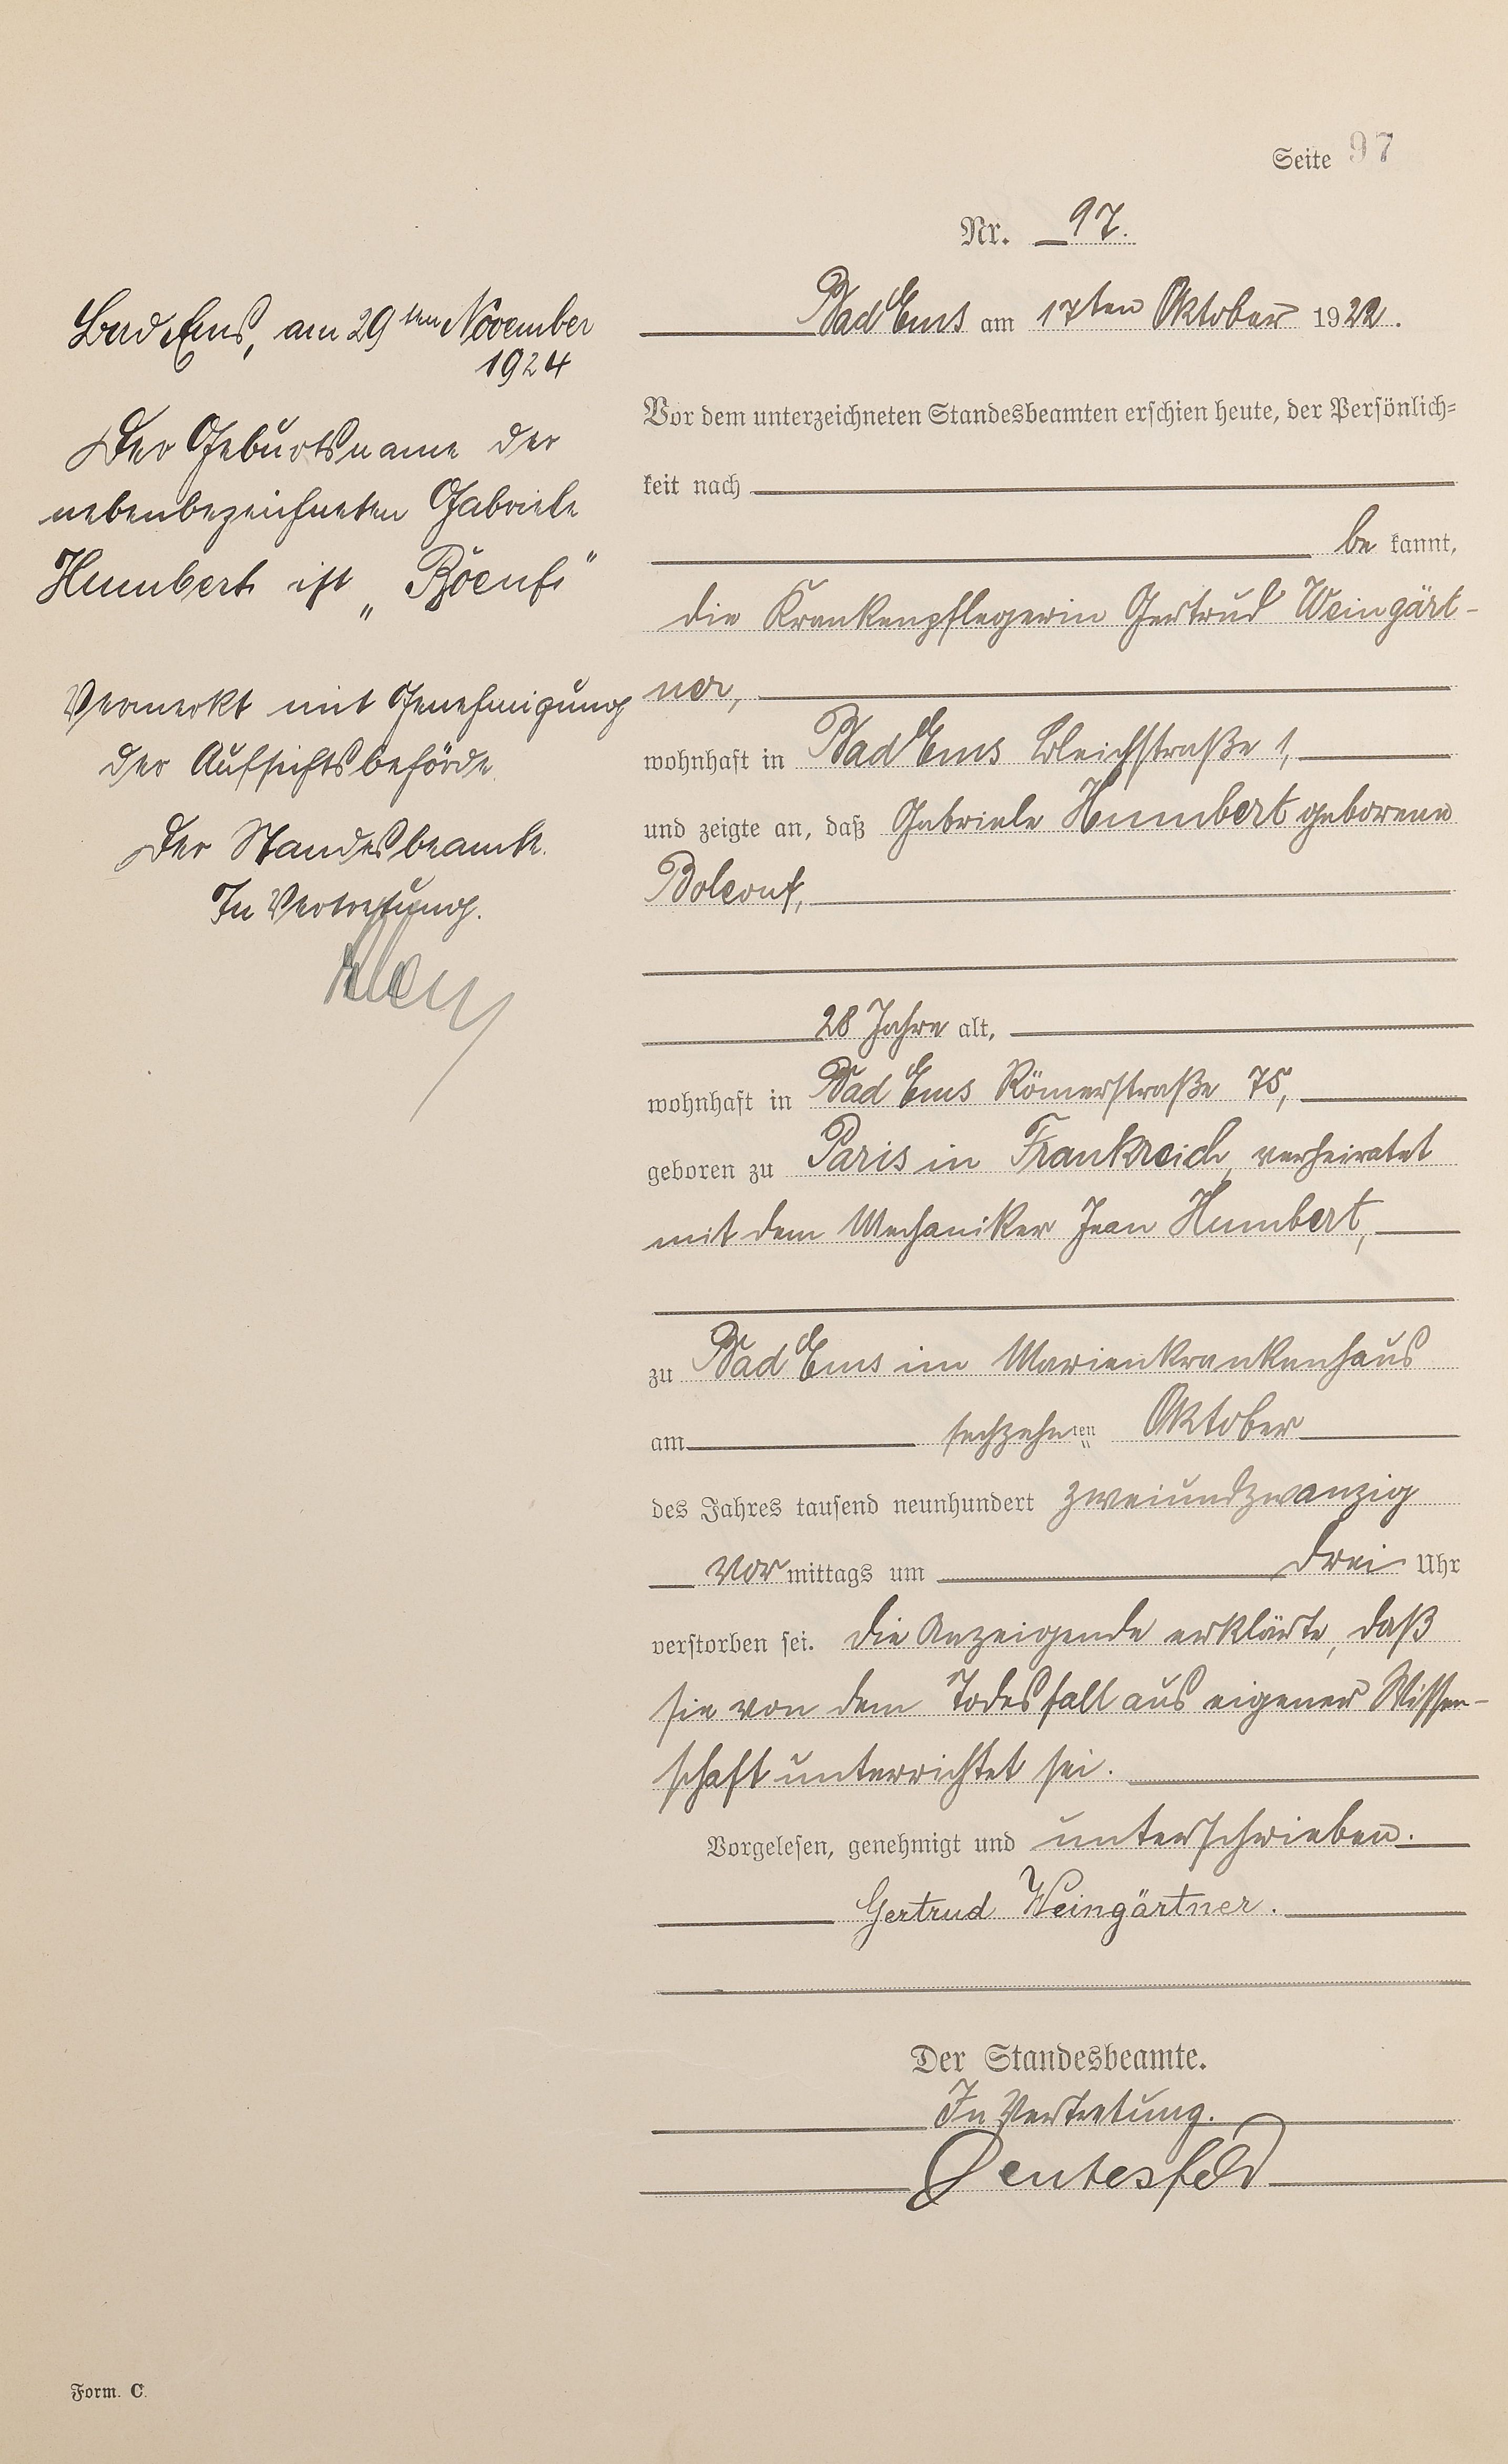 Seite 97
Nr. 97.
Bad Ems am 17ten Oktober 1922.
Vor dem unterzeichneten Standesbeamten erschien heute, der Persönlich=
keit nach
be kannt,
die Krankenpflegerin Gertrud Weingärt-
ner,
wohnhaft in Bad Ems Bleichstraße 1,
und zeigte an, daß Gabriele Humbert geborene
28 Jahre alt,
wohnhaft in Bad Ems Römerstraße 75,
geboren zu Paris in Frankreich, verheiratet
mit dem Mechaniker Jean Humbert,
zu Bad Ems im Marienkrankenhaus
am sechzehnten Oktober
des Jahres tausend neunhundert zweiundzwanzig
vor mittags um drei Uhr
verstorben sei. Die Anzeigende erklärte, daß
sie von dem Todesfall aus eigener Wissen-
schaft unterrichtet sei.
Vorgelesen, genehmigt und unterschrieben.
Gertrud Weingärtner.
Der Standesbeamte.
In Vertretung.
Bad Ems, am 29ten November
1924
Der Geburtsname der
nebenbezeichneten Gabriele
Humbert ist
Vermerkt mit Genehmigung
der Aufsichtsbehörde.
Der Standesbeamte.
In Vertretung.
Form. C.